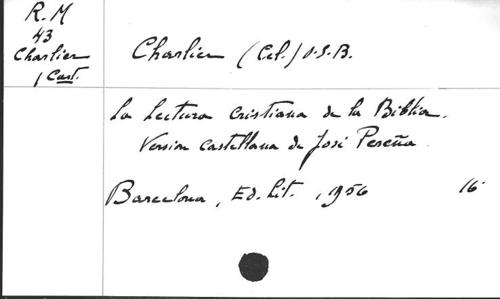 R. M
43
Charlier
1 Cast.
Charlier (Cel.) O.S.B.
La Lectura cristiana de la Biblia.
Version castellana de José Pereña
Barcelona, Ed. Lit., 1956 16